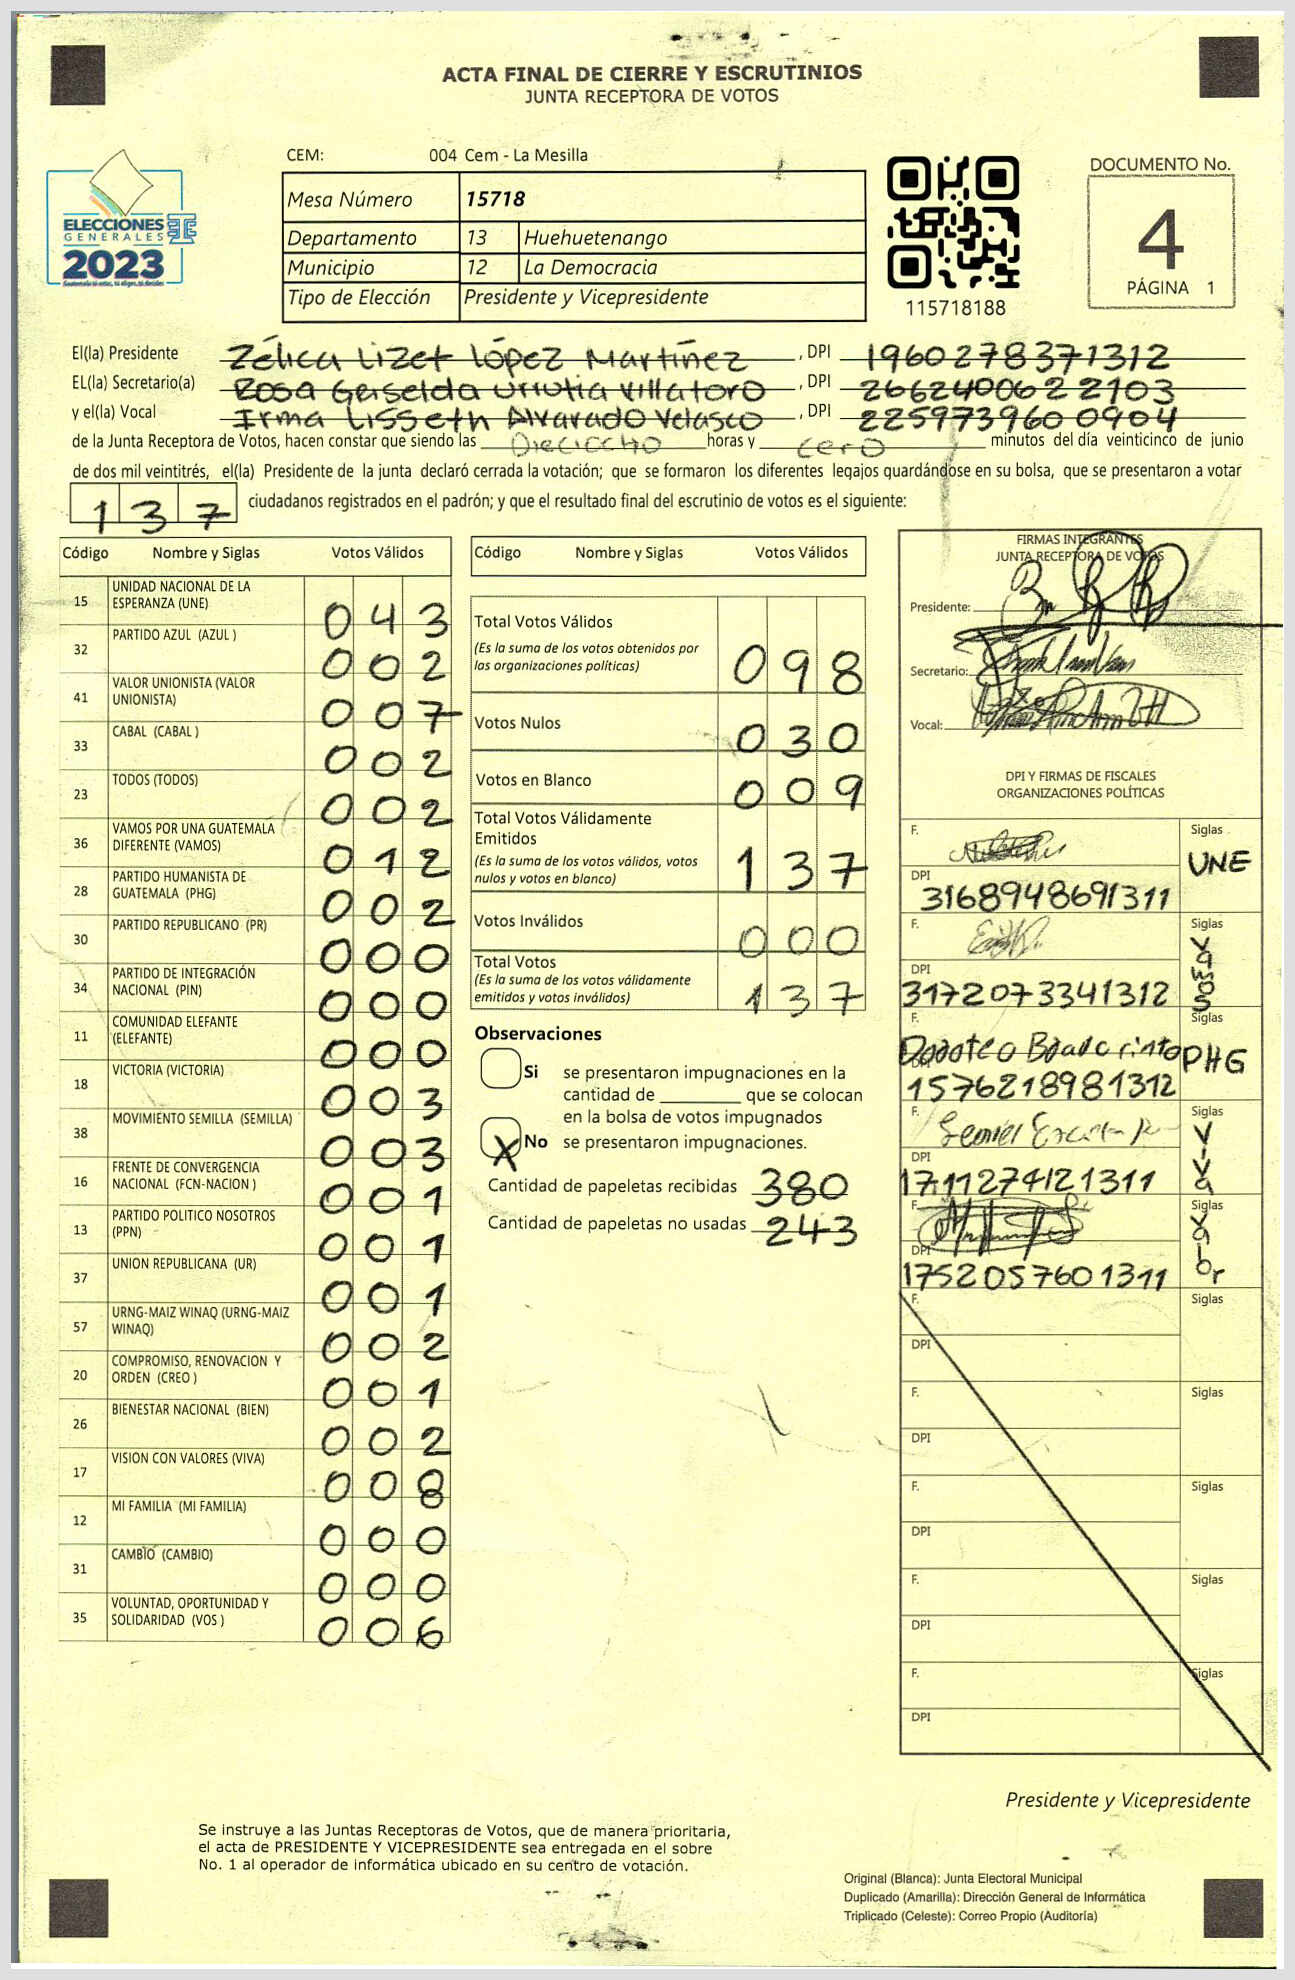 ACTA FINAL DE CIERRE Y ESCRUTINIOS
JUNTA RECEPTORA DE VOTOS
CEM: 004 Cem - La Mesilla
ELECCIONES
GENERALES
2023
Mesa Número 15718
Departamento 13 Huehuetenango
Municipio 12 La Democracia
Tipo de Elección Presidente y Vicepresidente
115718188
DOCUMENTO No.
4
PÁGINA 1
El(la) Presidente Zélica Lizet López Martínez, DPI 1960278371312
EL(la) Secretario(a) Rosa Geiselda Urrutia Villatoro, DPI 2662400622103
y el(la) Vocal Irma Lisseth Alvarado Velasco, DPI 2259739600904
de la Junta Receptora de Votos, hacen constar que siendo las Dieciocho horas y cero minutos del día veinticinco de junio
de dos mil veintitrés, el(la) Presidente de la junta declaró cerrada la votación; que se formaron los diferentes legajos guardándose en su bolsa, que se presentaron a votar
137 ciudadanos registrados en el padrón; y que el resultado final del escrutinio de votos es el siguiente:
Código Nombre y Siglas Votos Válidos
15 UNIDAD NACIONAL DE LA ESPERANZA (UNE) 043
32 PARTIDO AZUL (AZUL ) 002
41 VALOR UNIONISTA (VALOR UNIONISTA) 007
33 CABAL (CABAL ) 002
23 TODOS (TODOS) 002
36 VAMOS POR UNA GUATEMALA DIFERENTE (VAMOS) 012
28 PARTIDO HUMANISTA DE GUATEMALA (PHG) 002
30 PARTIDO REPUBLICANO (PR) 000
34 PARTIDO DE INTEGRACIÓN NACIONAL (PIN) 000
11 COMUNIDAD ELEFANTE (ELEFANTE) 000
18 VICTORIA (VICTORIA) 003
38 MOVIMIENTO SEMILLA (SEMILLA) 003
16 FRENTE DE CONVERGENCIA NACIONAL (FCN-NACION ) 001
13 PARTIDO POLITICO NOSOTROS (PPN) 001
37 UNION REPUBLICANA (UR) 001
57 URNG-MAIZ WINAQ (URNG-MAIZ WINAQ) 002
20 COMPROMISO, RENOVACION Y ORDEN (CREO ) 001
26 BIENESTAR NACIONAL (BIEN) 002
17 VISION CON VALORES (VIVA) 008
12 MI FAMILIA (MI FAMILIA) 000
31 CAMBIO (CAMBIO) 000
35 VOLUNTAD, OPORTUNIDAD Y SOLIDARIDAD (VOS ) 006
Código Nombre y Siglas Votos Válidos
Total Votos Válidos 098
(Es la suma de los votos obtenidos por
las organizaciones políticas)
Votos Nulos 030
Votos en Blanco 009
Total Votos Válidamente
Emitidos 137
(Es la suma de los votos válidos, votos
nulos y votos en blanco)
Votos Inválidos 000
Total Votos 137
(Es la suma de los votos válidamente
emitidos y votos inválidos)
Observaciones
Si se presentaron impugnaciones en la
cantidad de ________ que se colocan
en la bolsa de votos impugnados
X No se presentaron impugnaciones.
Cantidad de papeletas recibidas 380
Cantidad de papeletas no usadas 243
FIRMAS INTEGRANTES
JUNTA RECEPTORA DE VOTOS
Presidente:
Secretario:
Vocal:
DPI Y FIRMAS DE FISCALES
ORGANIZACIONES POLÍTICAS
F. Siglas UNE
DPI 3168948691311
F. Siglas Vamos
DPI 3172073341312
F. Siglas PHG
DPI 1576218981312
F. Siglas
DPI 1711274121311
F. Siglas
DPI 1752057601311
F. Siglas
DPI
F. Siglas
DPI
F. Siglas
DPI
F. Siglas
DPI
F. Siglas
DPI
Presidente y Vicepresidente
Se instruye a las Juntas Receptoras de Votos, que de manera prioritaria,
el acta de PRESIDENTE Y VICEPRESIDENTE sea entregada en el sobre
No. 1 al operador de informática ubicado en su centro de votación.
Original (Blanca): Junta Electoral Municipal
Duplicado (Amarilla): Dirección General de Informática
Triplicado (Celeste): Correo Propio (Auditoría)